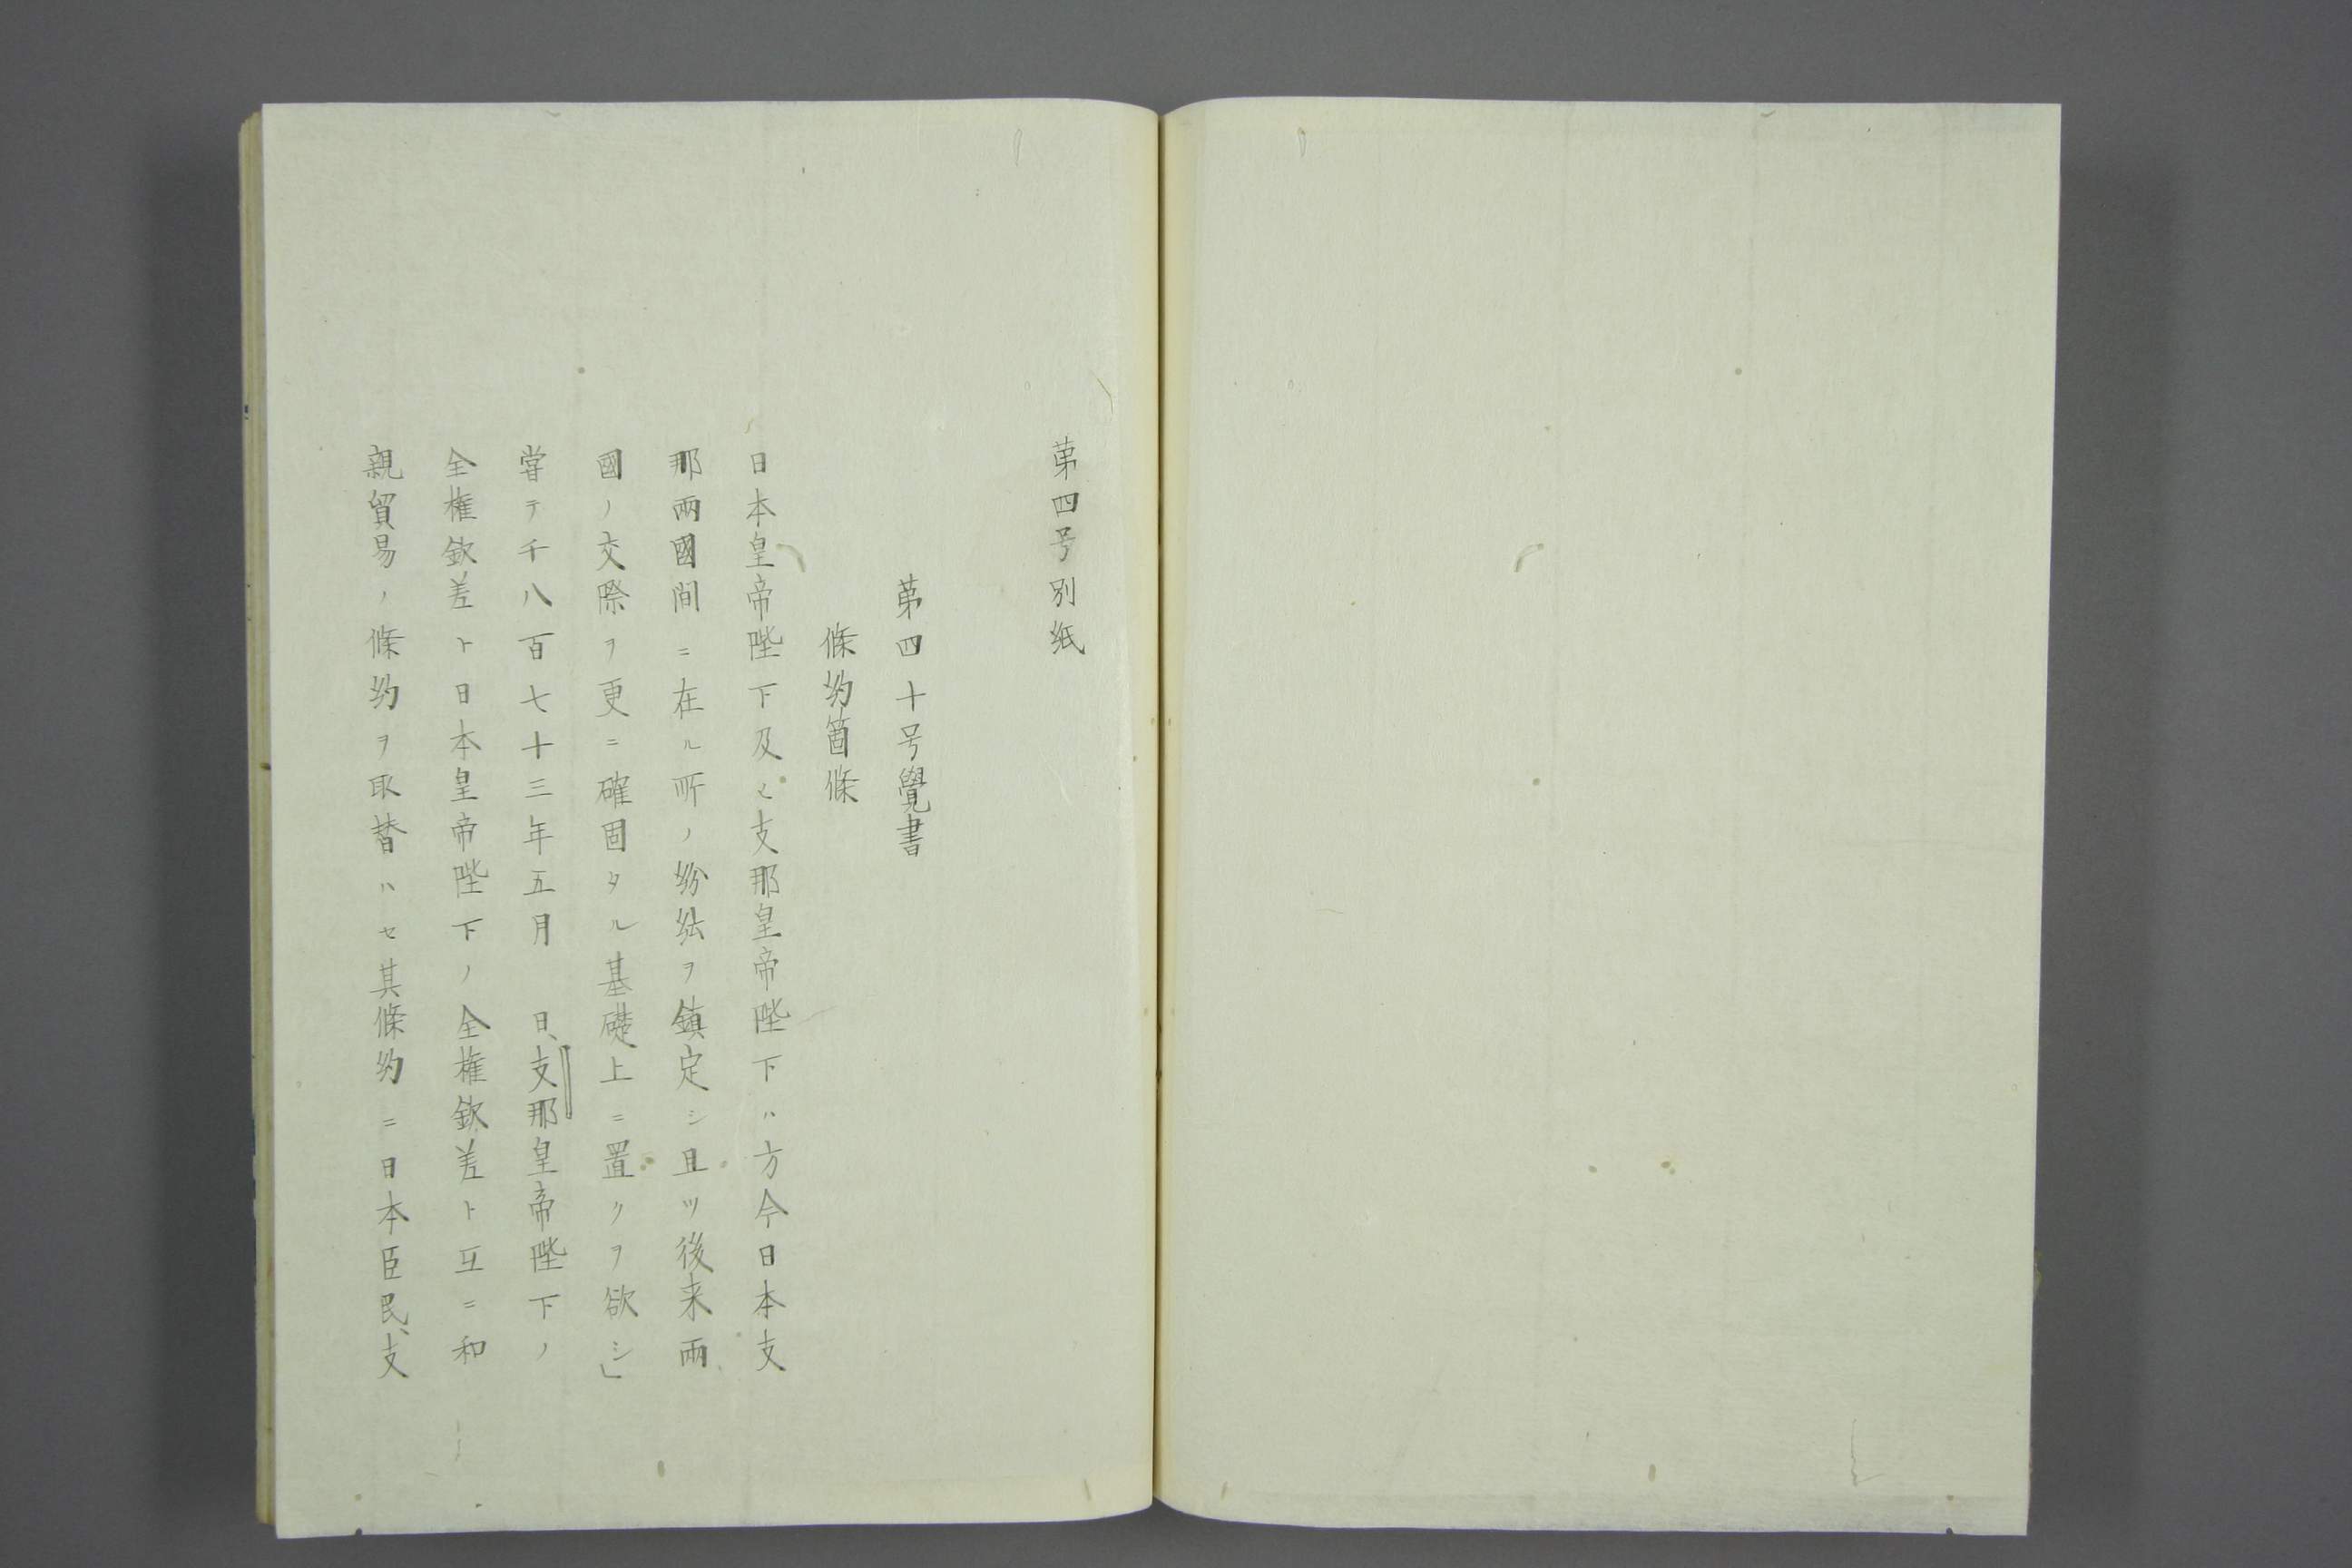 第四号別紙
第四十号覺書
條約箇條
日本皇帝陛下及ヒ支那皇帝陛下ハ方今日本支
那兩國間ニ在ル所ノ紛紜ヲ鎮定シ且ツ後来兩
國ノ交際ヲ更ニ確固タル基礎上ニ置クヲ欲シ」
嘗テ千八百七十三年五月　日、支那皇帝陛下ノ
全権欽差ト日本皇帝陛下ノ全権欽差ト互ニ和
親貿易ノ條約ヲ取替ハセ其條約ニ日本臣民、支